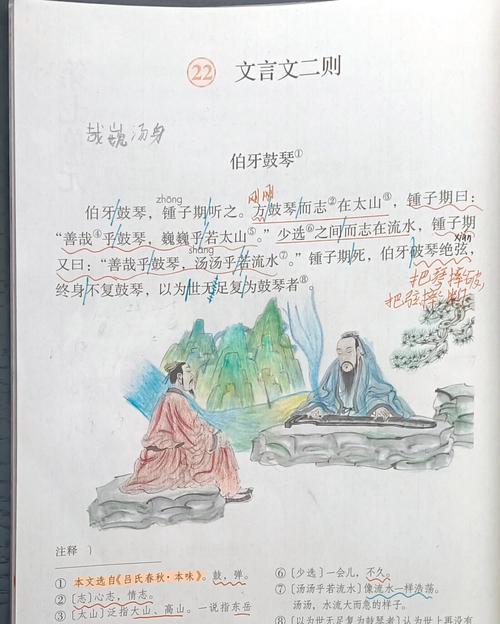 22 文言文二则
哉巍汤身
伯牙鼓琴①
zhōng
刚刚
伯牙鼓琴，锺子期听之。方鼓琴而志②在太山③，锺子期曰：
shāng
“善哉④乎鼓琴，巍巍乎若太山⑤。”少选⑥之间而志在流水，锺子期
又曰：“善哉乎鼓琴，汤汤乎若流水⑦。”锺子期死，伯牙破琴绝弦，
终身不复鼓琴，以为世无足复为鼓琴者⑧。
把琴摔破，
把弦摔断
注释
① 本文选自《吕氏春秋·本味》。鼓，弹。
② 〔志〕心志，情志。
③ 〔太山〕泛指大山、高山。一说指东岳
⑥ 〔少选〕一会儿，不久。
⑦ 〔汤汤乎若流水〕像流水一样浩荡。
汤汤，水流大而急的样子。
⑧ 〔以为世无足复为鼓琴者〕认为世上再没有